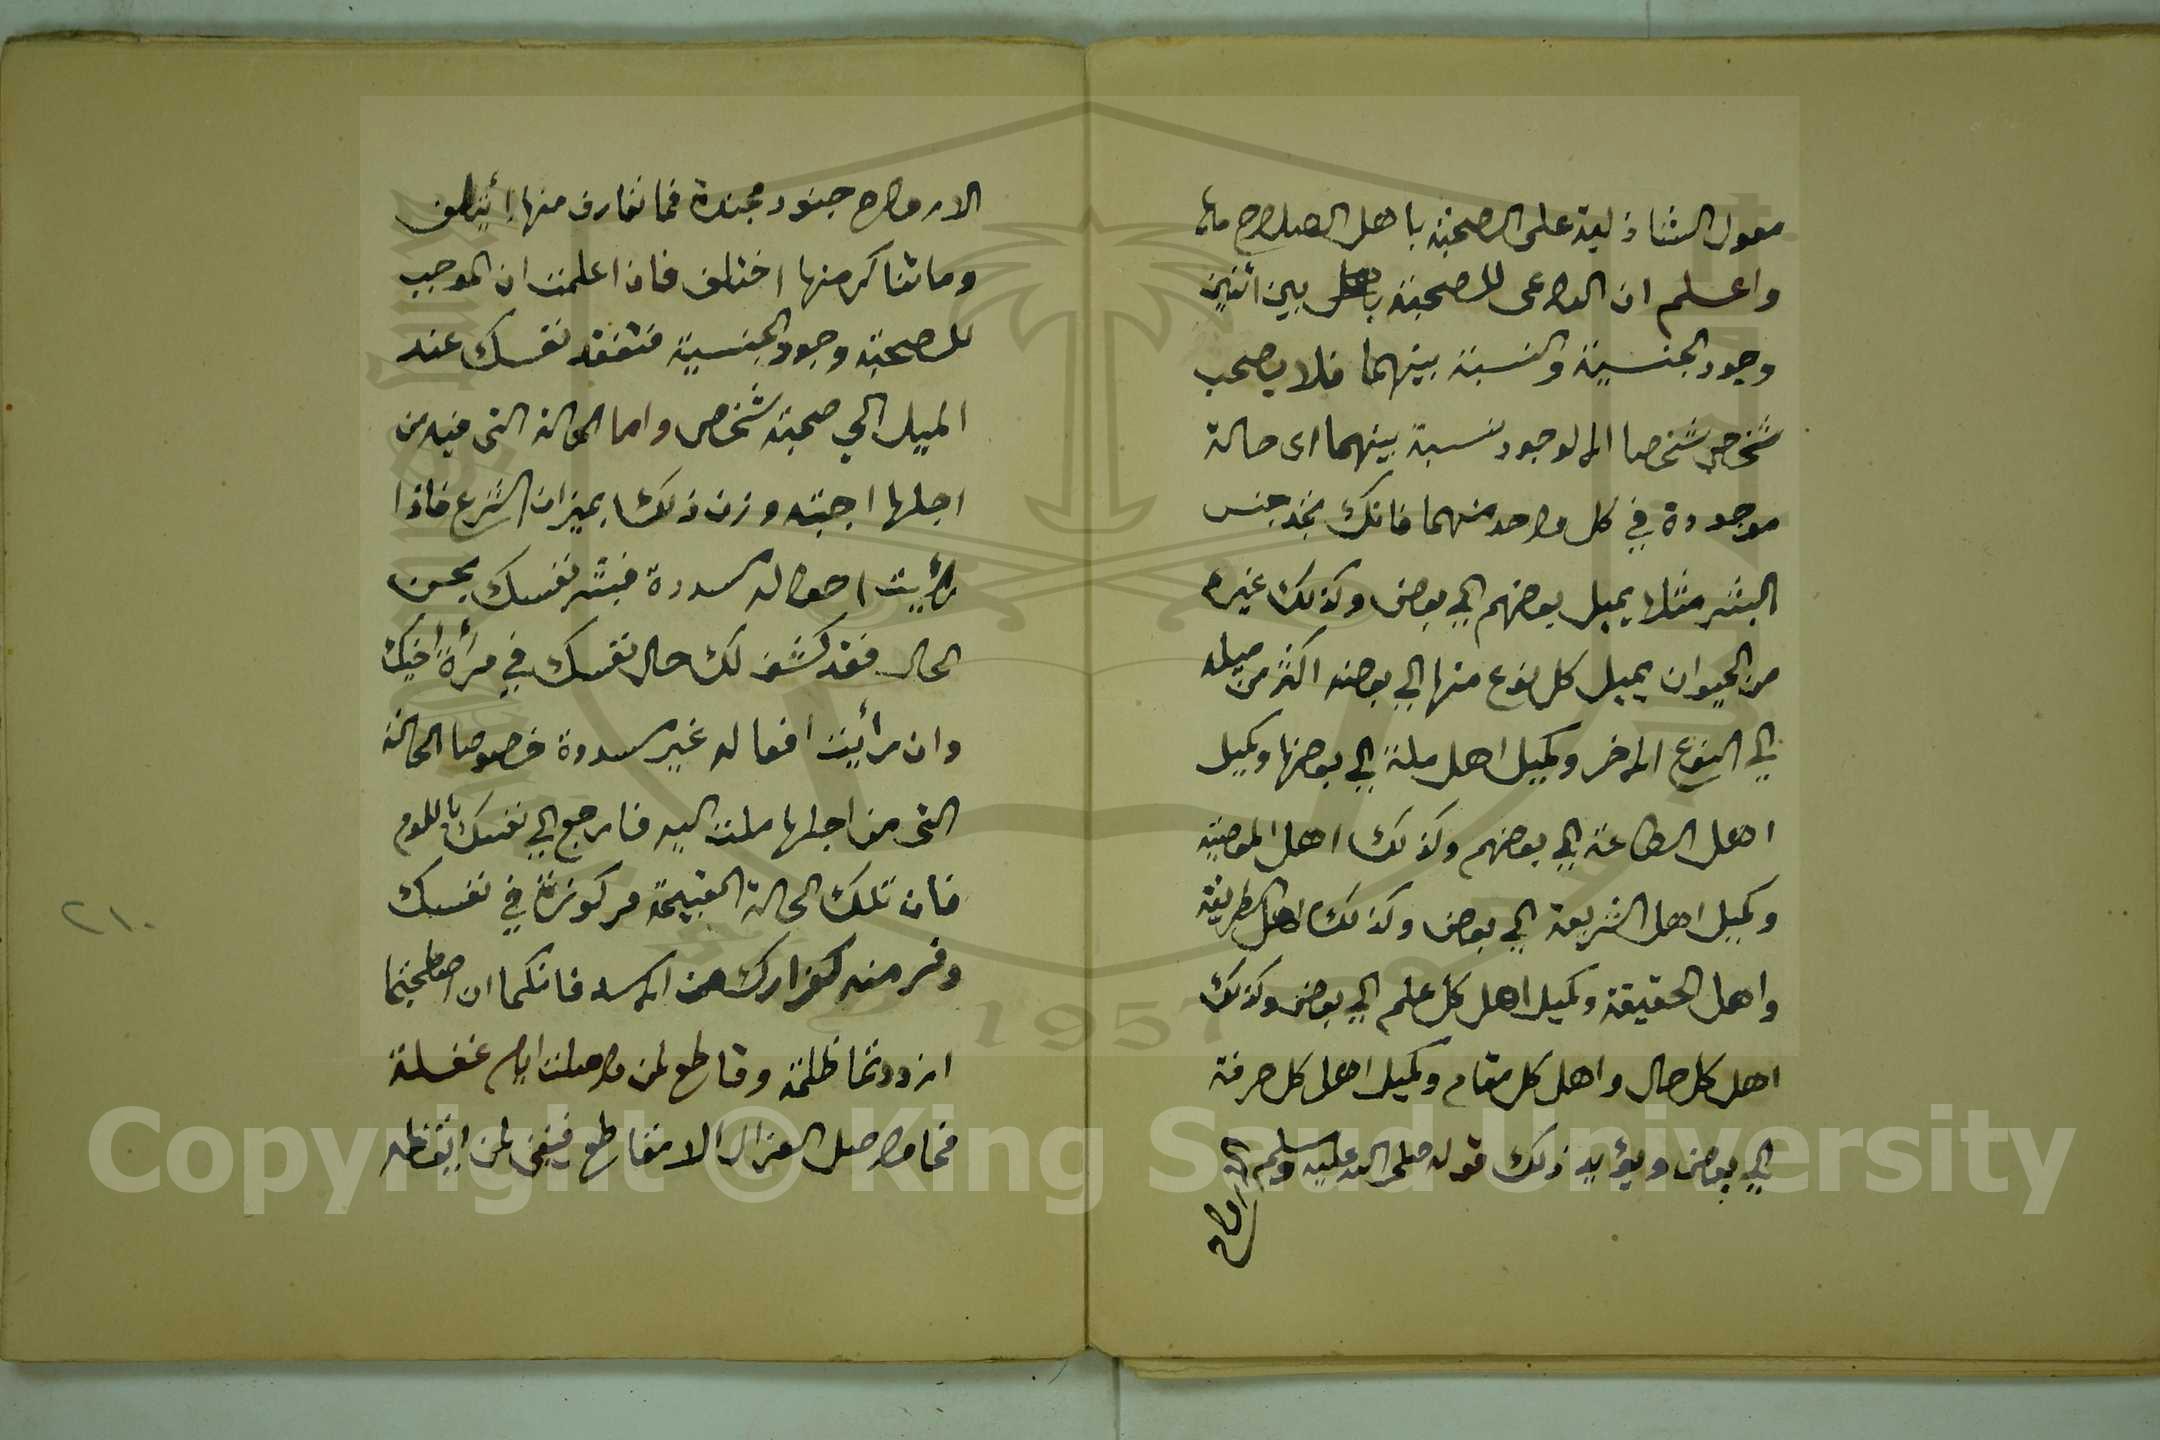 معول الشاذلية على الصحبة باهل الصلاح مالها
واعلم ان الداعى للصحبة بين اثنين
وجود الجنسية والنسبة بينهما فلا يصحب
شخص شخصا الا لوجود نسبة بينهما اى حالة
موجودة في كل واحد منهما فانك تجد جنس
البشر مثلا يميل بعضهم الي بعض وكذلك غيره
من الحيوان يميل كل نوع منها الي بعضه اكثر من ميله
الي النوع الاخر وكميل اهل ملة الي بعضها وكميل
اهل الطاعة الي بعضهم وكذلك اهل المعصية
وكميل اهل الشريعة الي بعض وكذلك اهل الطريقة
واهل الحقيقة وكميل اهل كل علم الي بعض وكذلك
اهل كل حال واهل كل مقام وكميل اهل كل حرفة
الي بعض ويؤيد ذلك قوله صلى الله عليه وسلم
الارواح
الارواح جنود مجندة فما تعارف منها ائتلف
وما تناكر منها اختلف فاذا علمت ان الموجب
للصحبة وجود الجنسية فتفقد نفسك عند
الميل الي صحبة شخص واما الحالة التى فيه من
اجلها اجبته وزن ذلك بميزان الشرع فاذا
رأيت احواله مسددة فبشر نفسك بحسن
الحال فقد كشف لك حال نفسك في مرأة اخيك
وان رأيت افعاله غير مسددة خصوصا الحالة
التى من اجلها ملت اليه فارجع الي نفسك باللوم
فان تلك الحالة القبيحة مركوزة في نفسك
وفر منه كفرارك من الاسد فانكما ان اصطحبتما
ازددتما ظلمة وقاطع لمن واصلت ايام غفلة
فما واصل العزال الا مقاطع فينبغى لمن ايقظه
٢١٠
Copyright © King Saud University
1957